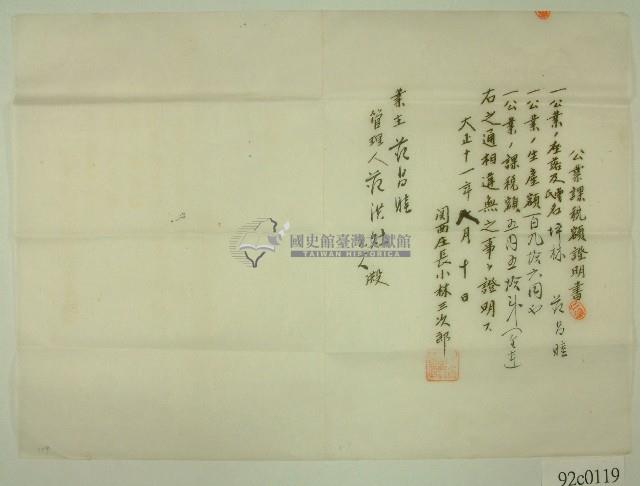 公業課税額證明書
一公業ノ座落及 名 坪林 范昌睦
一公業ノ生產額百九拾六円
一公業ノ課税額五円五拾
右之通相違無之事ヲ證明ス
大正十一年 月十日
関西庄長小林三次郎
業主 范昌睦
管理人范洪 殿
國史館臺灣文獻館
TAIWAN HISTORICA
92c0119